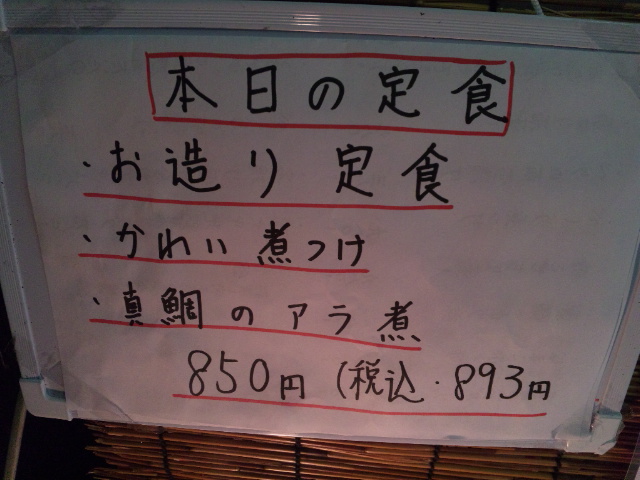 本日の定食
・お造り 定食
・かわい煮つけ
・真鯛のアラ煮
850円 (税込・893円